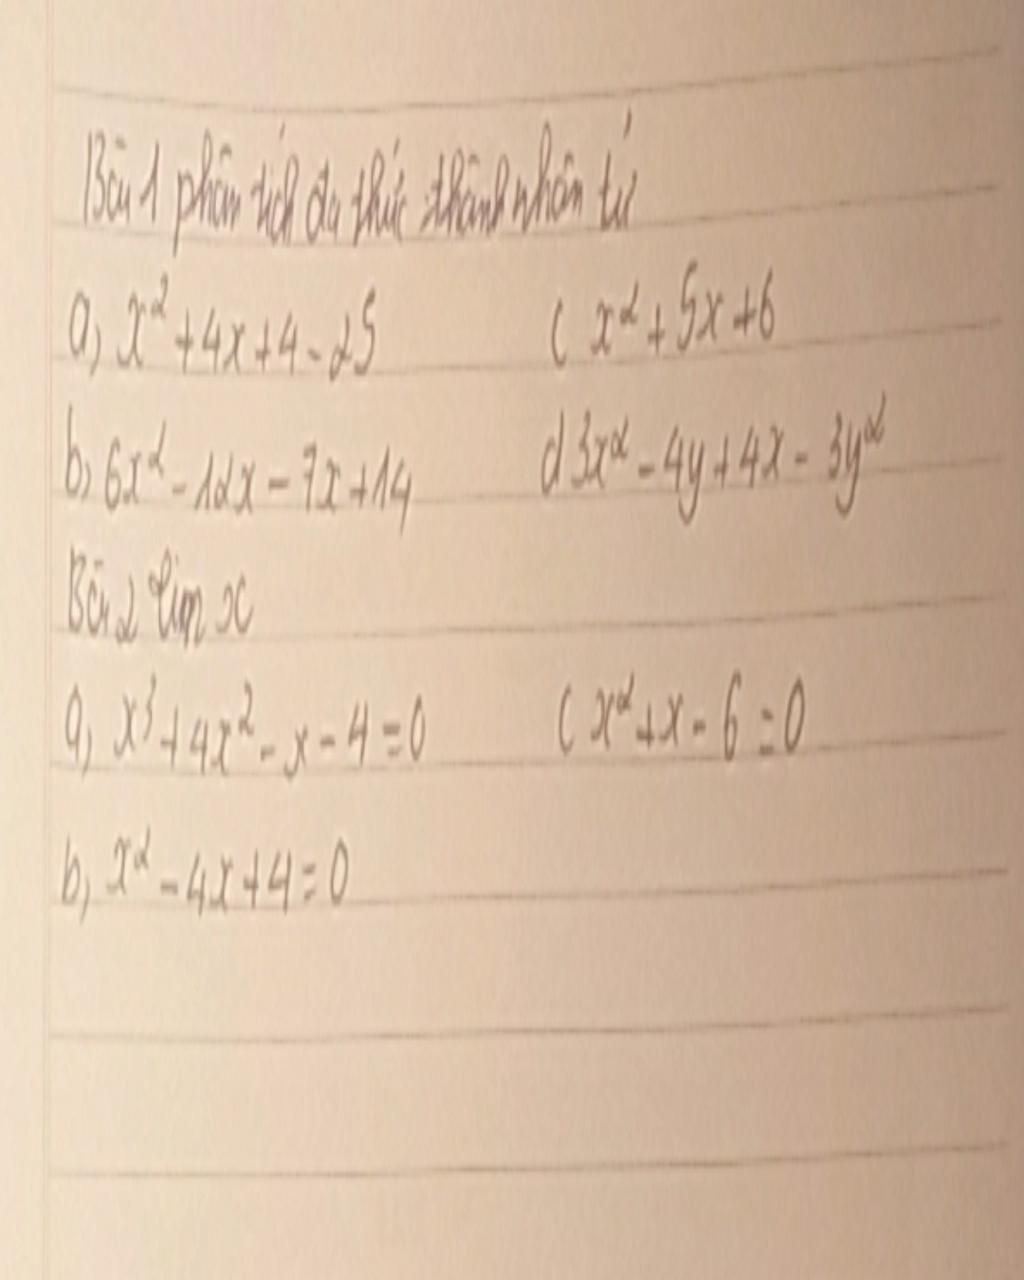 Bài 1 phân tích đa thức thành nhân tử
a, x² + 4x + 4 - 25 c x² + 5x + 6
b, 6x² - 12x - 7x + 14 d 3x² - 4y + 4x - 3y²
Bài 2 tìm x
a, x³ + 4x² - x - 4 = 0 c x² + x - 6 = 0
b, x² - 4x + 4 = 0